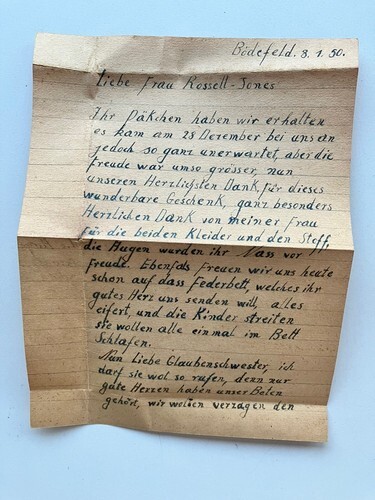 Bödefeld. 8.1.50.
Liebe Frau Rossell-Jones
Ihr Päkchen haben wir erhalten
es kam am 28 Dezember bei uns an
jedoch so ganz unerwartet, aber die
freude war umso grösser, nun
unseren Herzlichsten Dank, für dieses
wunderbare Geschenk, ganz besonders
Herzlichen Dank von meiner Frau
für die beiden Kleider und den Stoff,
die Augen wurden ihr Nass vor
freude. Ebenfals freuen wir uns heute
schon auf dass Federbett, welches ihr
gutes Herz uns senden will, alles
eifert, und die Kinder streiten
sie wollen alle einmal im Bett
Schlafen.
Nun Liebe Glaubenschwester, ich
darf sie wol so rufen, denn nur
gute Herzen haben unser Beten
gehört, wir wolten verzagen den